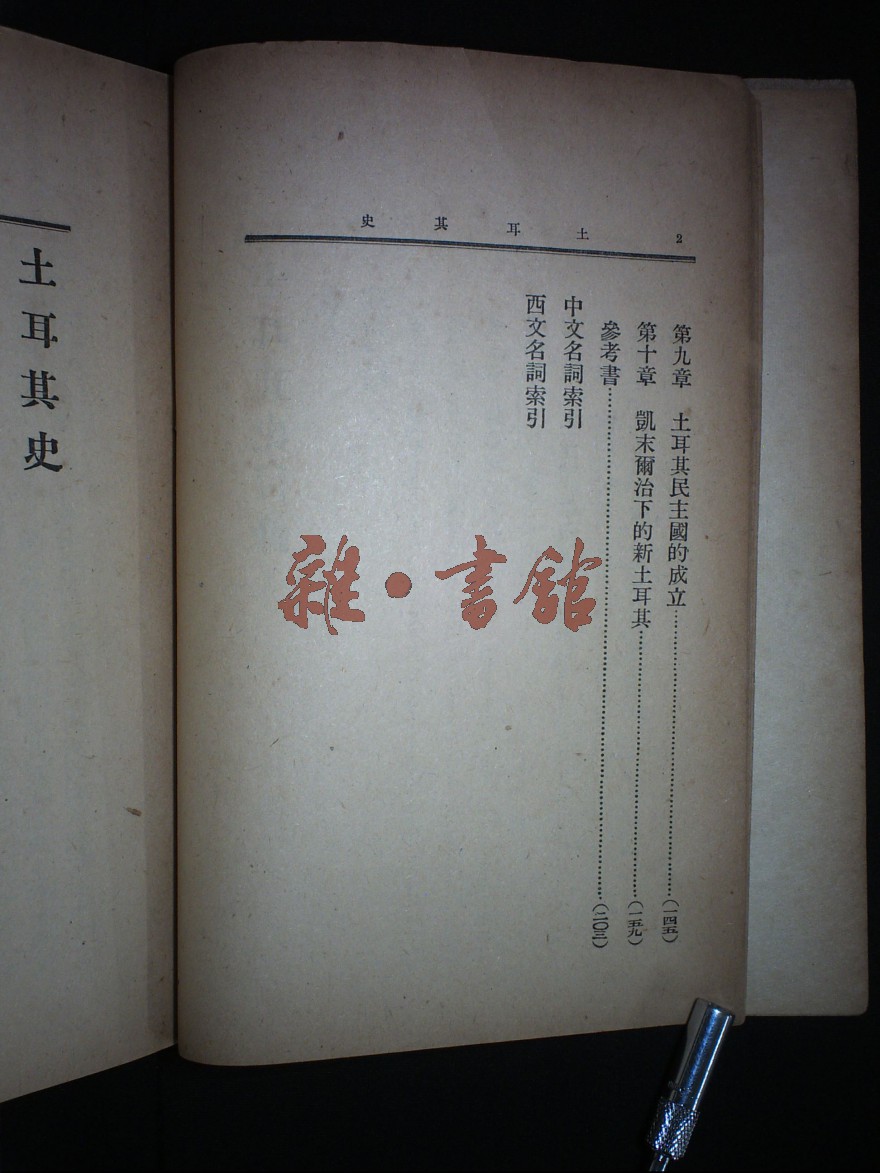 2 土耳其史
第九章 土耳其民主國的成立……(一四五)
第十章 凱末爾治下的新土耳其……(一五九)
參考書……(二〇三)
中文名詞索引
西文名詞索引
土耳其史
雜·書館